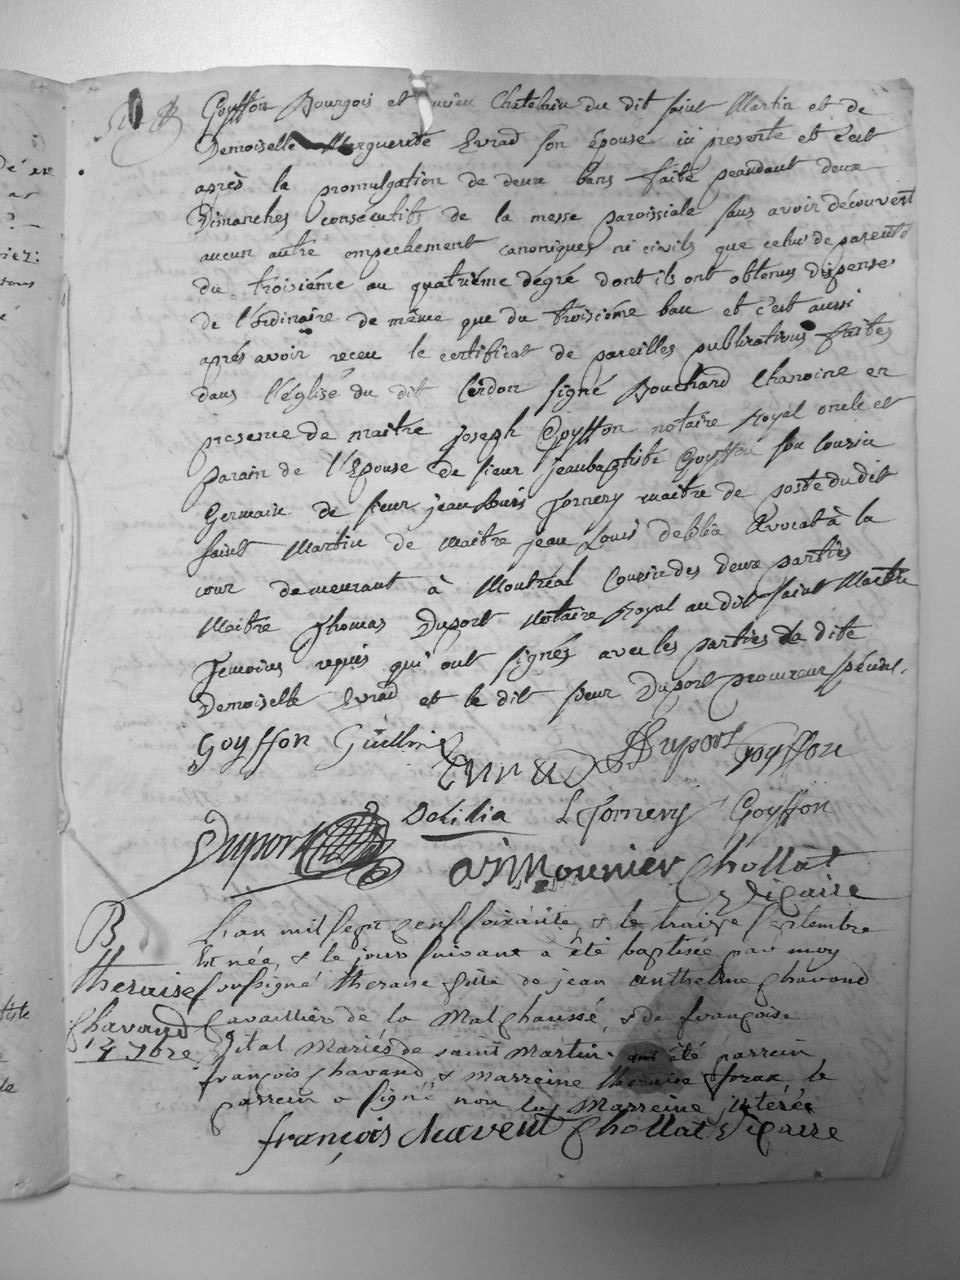 Goyffon Bourgois et ancien Chatelain du dit saint Martin et de
Demoiselle Marguerite Evrad son Epouse ici presente et c'est
après la promulgation de deux bans faite peandant deux
Dimanches consecutifs de la messe paroissiale sans avoir découvert
aucun autre empechement canoniques ni civils que celui de parenté
du troisième au quatrième dégré dont ils ont obtenus dispense
de l'Ordinaire de même que du troisième ban et c'est aussi
après avoir receu le certificat de pareilles publications faites
dans l'église du dit Cerdon signé Bouchard Chanoine en
presence de maitre joseph Goyffon notaire Royal oncle et
parain de l'Epouse de sieur jeanbaptiste Goyffon son Cousin
Germain de sieur jean Louis Jornery maitre de poste du dit
saint Martin de Maitre jean Louis Delilia Avocat à la
cour demeurant à Montréal Cousin des deux parties
Maitre Thomas Duport Notaire Royal au dit saint Martin
Temoins requis qui ont signés avec les parties la dite
Demoiselle Evrad et le dit sieur Duport procureur spécial.
Goyffon Guillin
Evrad Duport Goyffon
Delilia L Jornery Goyffon
Duport Mounier Chollat
Vicaire
B
theraise
Chavand
14 7bre
L'an mil sept cens soixante, & le traize septembre
Est née, & le jour suivant a été baptisée par moy
soussigné theraise fille de jean anthelme Chavand
Cavaillier de la Malchaussé, & de françoise
Vital Mariés de saint Martin. ont été parrein
françois Chavand & marreine theraise le
parrein a signé non la Marreine
françois chavent Chollat Vicaire